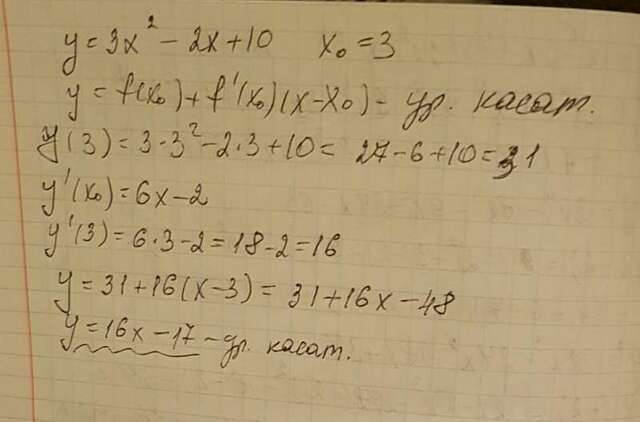 y = 3x² − 2x + 10 x₀ = 3
y = f(x₀) + f'(x₀)(x − x₀) – ур. касат.
y(3) = 3·3² − 2·3 + 10 = 27 − 6 + 10 = 31
y'(x₀) = 6x − 2
y'(3) = 6·3 − 2 = 18 − 2 = 16
y = 31 + 16(x − 3) = 31 + 16x − 48
y = 16x − 17 – ур. касат.